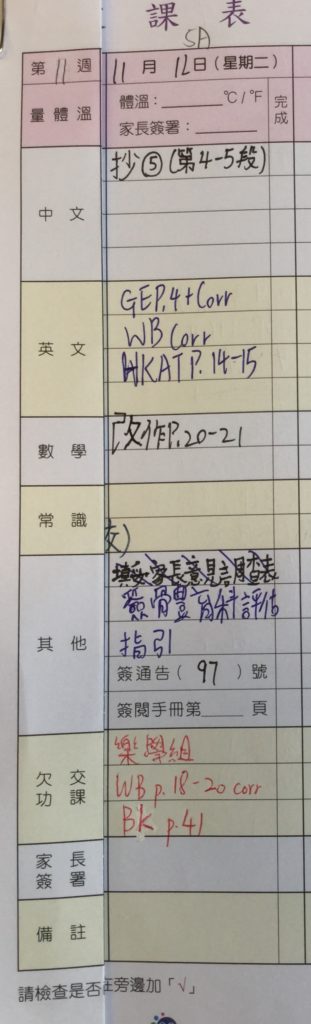 課 表
5A
第 11 週 11 月 12 日 (星期二)
量 體 溫 體溫：______ °C / °F 完成
家長簽署：______
中 文 抄⑤(第4-5段)
英 文 GE P.4 + Corr
WB Corr
HKAT P. 14-15
數 學 改作P.20-21
常 識
交)
其 他 填妥家長意見調查表
簽骨豊育科評估
指引
簽通告 ( 97 ) 號
簽閱手冊第____頁
欠 交 功 課 樂學組
WB p.18-20 corr
BK p.41
家 長 簽 署
備 註
請檢查是否在旁邊加「√」